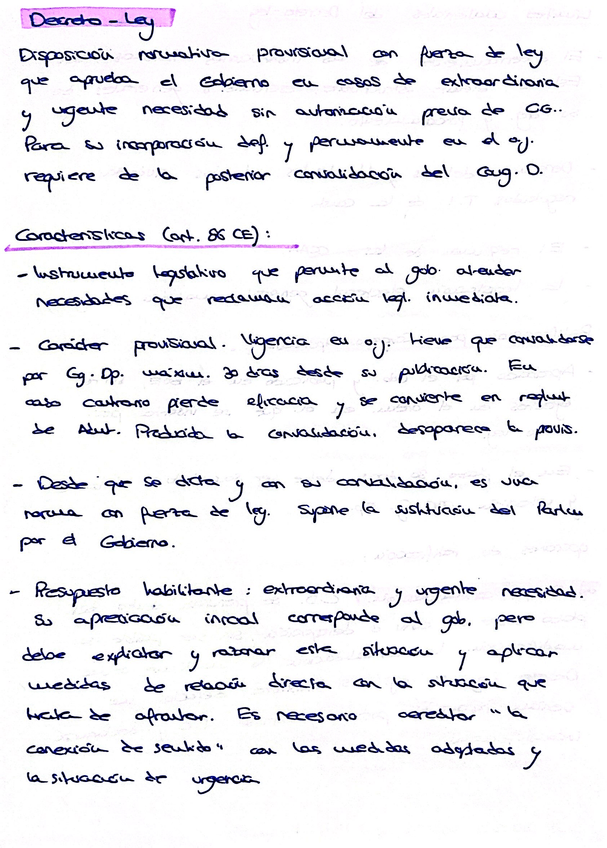 Decreto - Ley
Disposición normativa provisional con fuerza de ley
que aprueba el Gobierno en casos de extraordinaria
y urgente necesidad sin autorización previa de CG..
Para su incorporación def. y permanente en el o.j.
requiere de la posterior convalidación del Cong. D.
Características (art. 86 CE):
- Instrumento legislativo que permite al gob. atender
necesidades que reclaman acción legl. inmediata.
- Carácter provisional. Vigencia en o.j. tiene que convalidarse
por Cg. Dp. máxim. 30 días desde su publicación. En
caso contrario pierde eficacia y se convierte en reglmt
de Admt. Producida la convalidación, desaparece la provis.
- Desde que se dicta y con su convalidación, es una
norma con fuerza de ley. Supone la sustitución del Parlm
por el Gobierno.
- Presupuesto habilitante: extraordinaria y urgente necesidad.
Su apreciación inicial corresponde al gob, pero
debe explicitar y razonar esta situación y aplicar
medidas de relación directa con la situación que
trata de afrontar. Es necesario acreditar "la
conexión de sentido" con las medidas adoptadas y
la situación de urgencia